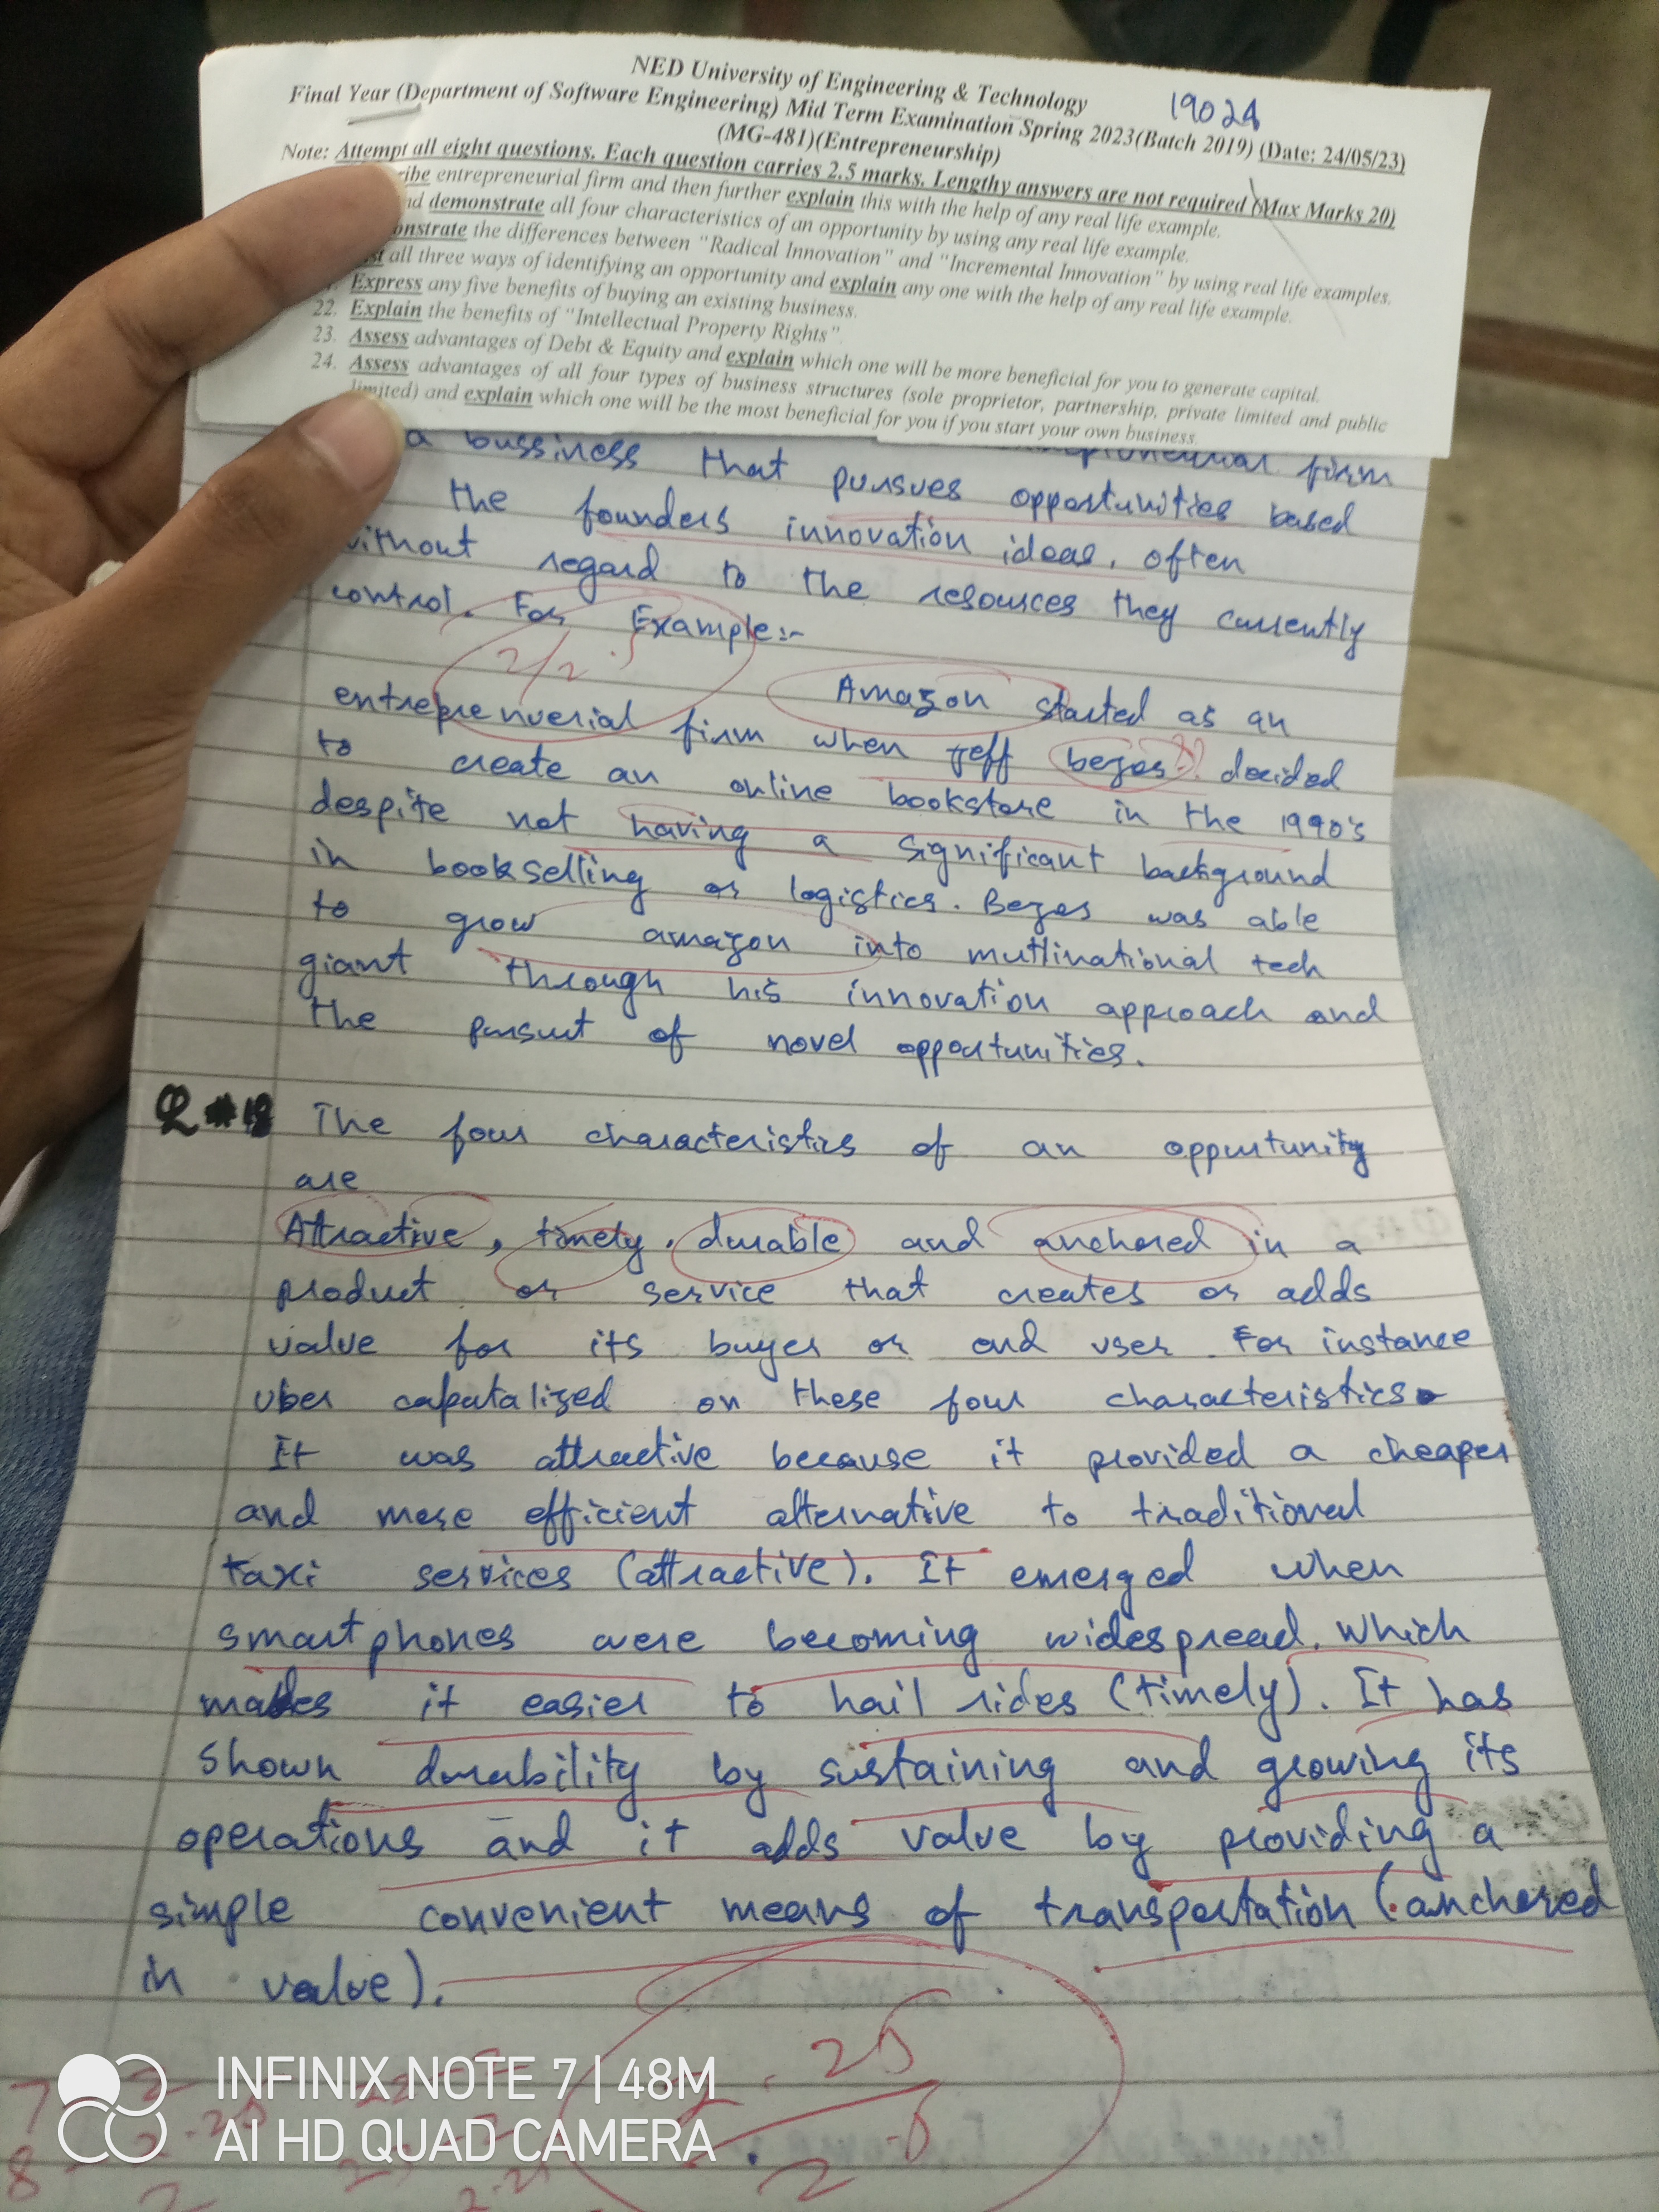 NED University of Engineering & Technology
19024
Final Year (Department of Software Engineering) Mid Term Examination Spring 2023(Batch 2019) (Date: 24/05/23)
(MG-481)(Entrepreneurship)
Note: Attempt all eight questions. Each question carries 2.5 marks. Lengthy answers are not required (Max Marks 20)
ribe entrepreneurial firm and then further explain this with the help of any real life example.
nd demonstrate all four characteristics of an opportunity by using any real life example.
onstrate the differences between "Radical Innovation" and "Incremental Innovation" by using real life examples.
st all three ways of identifying an opportunity and explain any one with the help of any real life example.
Express any five benefits of buying an existing business.
22. Explain the benefits of "Intellectual Property Rights"
23. Assess advantages of Debt & Equity and explain which one will be more beneficial for you to generate capital.
24. Assess advantages of all four types of business structures (sole proprietor, partnership, private limited and public
limited) and explain which one will be the most beneficial for you if you start your own business.
firm
a bussiness that pursues opportunities based
the founders innovation ideas, often
without regard to the resources they currently
control. For Example:-
2/2.5
Amazon started as an
entreprenuerial firm when Jeff bezos decided
to create an online bookstore in the 1990's
despite not having a significant background
in bookselling or logistics. Bezos was able
to grow amazon into mutlinational tech
giant through his innovation approach and
the pursuit of novel opportunities.
Q#18 The four characteristics of an oppurtunity
are
Attractive, timely, durable and anchored in a
product or service that creates or adds
value for its buyer or end user. For instance
uber caputalized on these four characteristics.
It was attractive because it provided a cheaper
and more efficient alternative to traditional
taxi services (attractive). It emerged when
smartphones were becoming widespread. which
makes it easier to hail rides (timely). It has
shown durability by sustaining and growing its
operations and it adds value by providing a
simple convenient means of transportation (anchored
in value).
2.25
2.5
INFINIX NOTE 7 | 48M
AI HD QUAD CAMERA